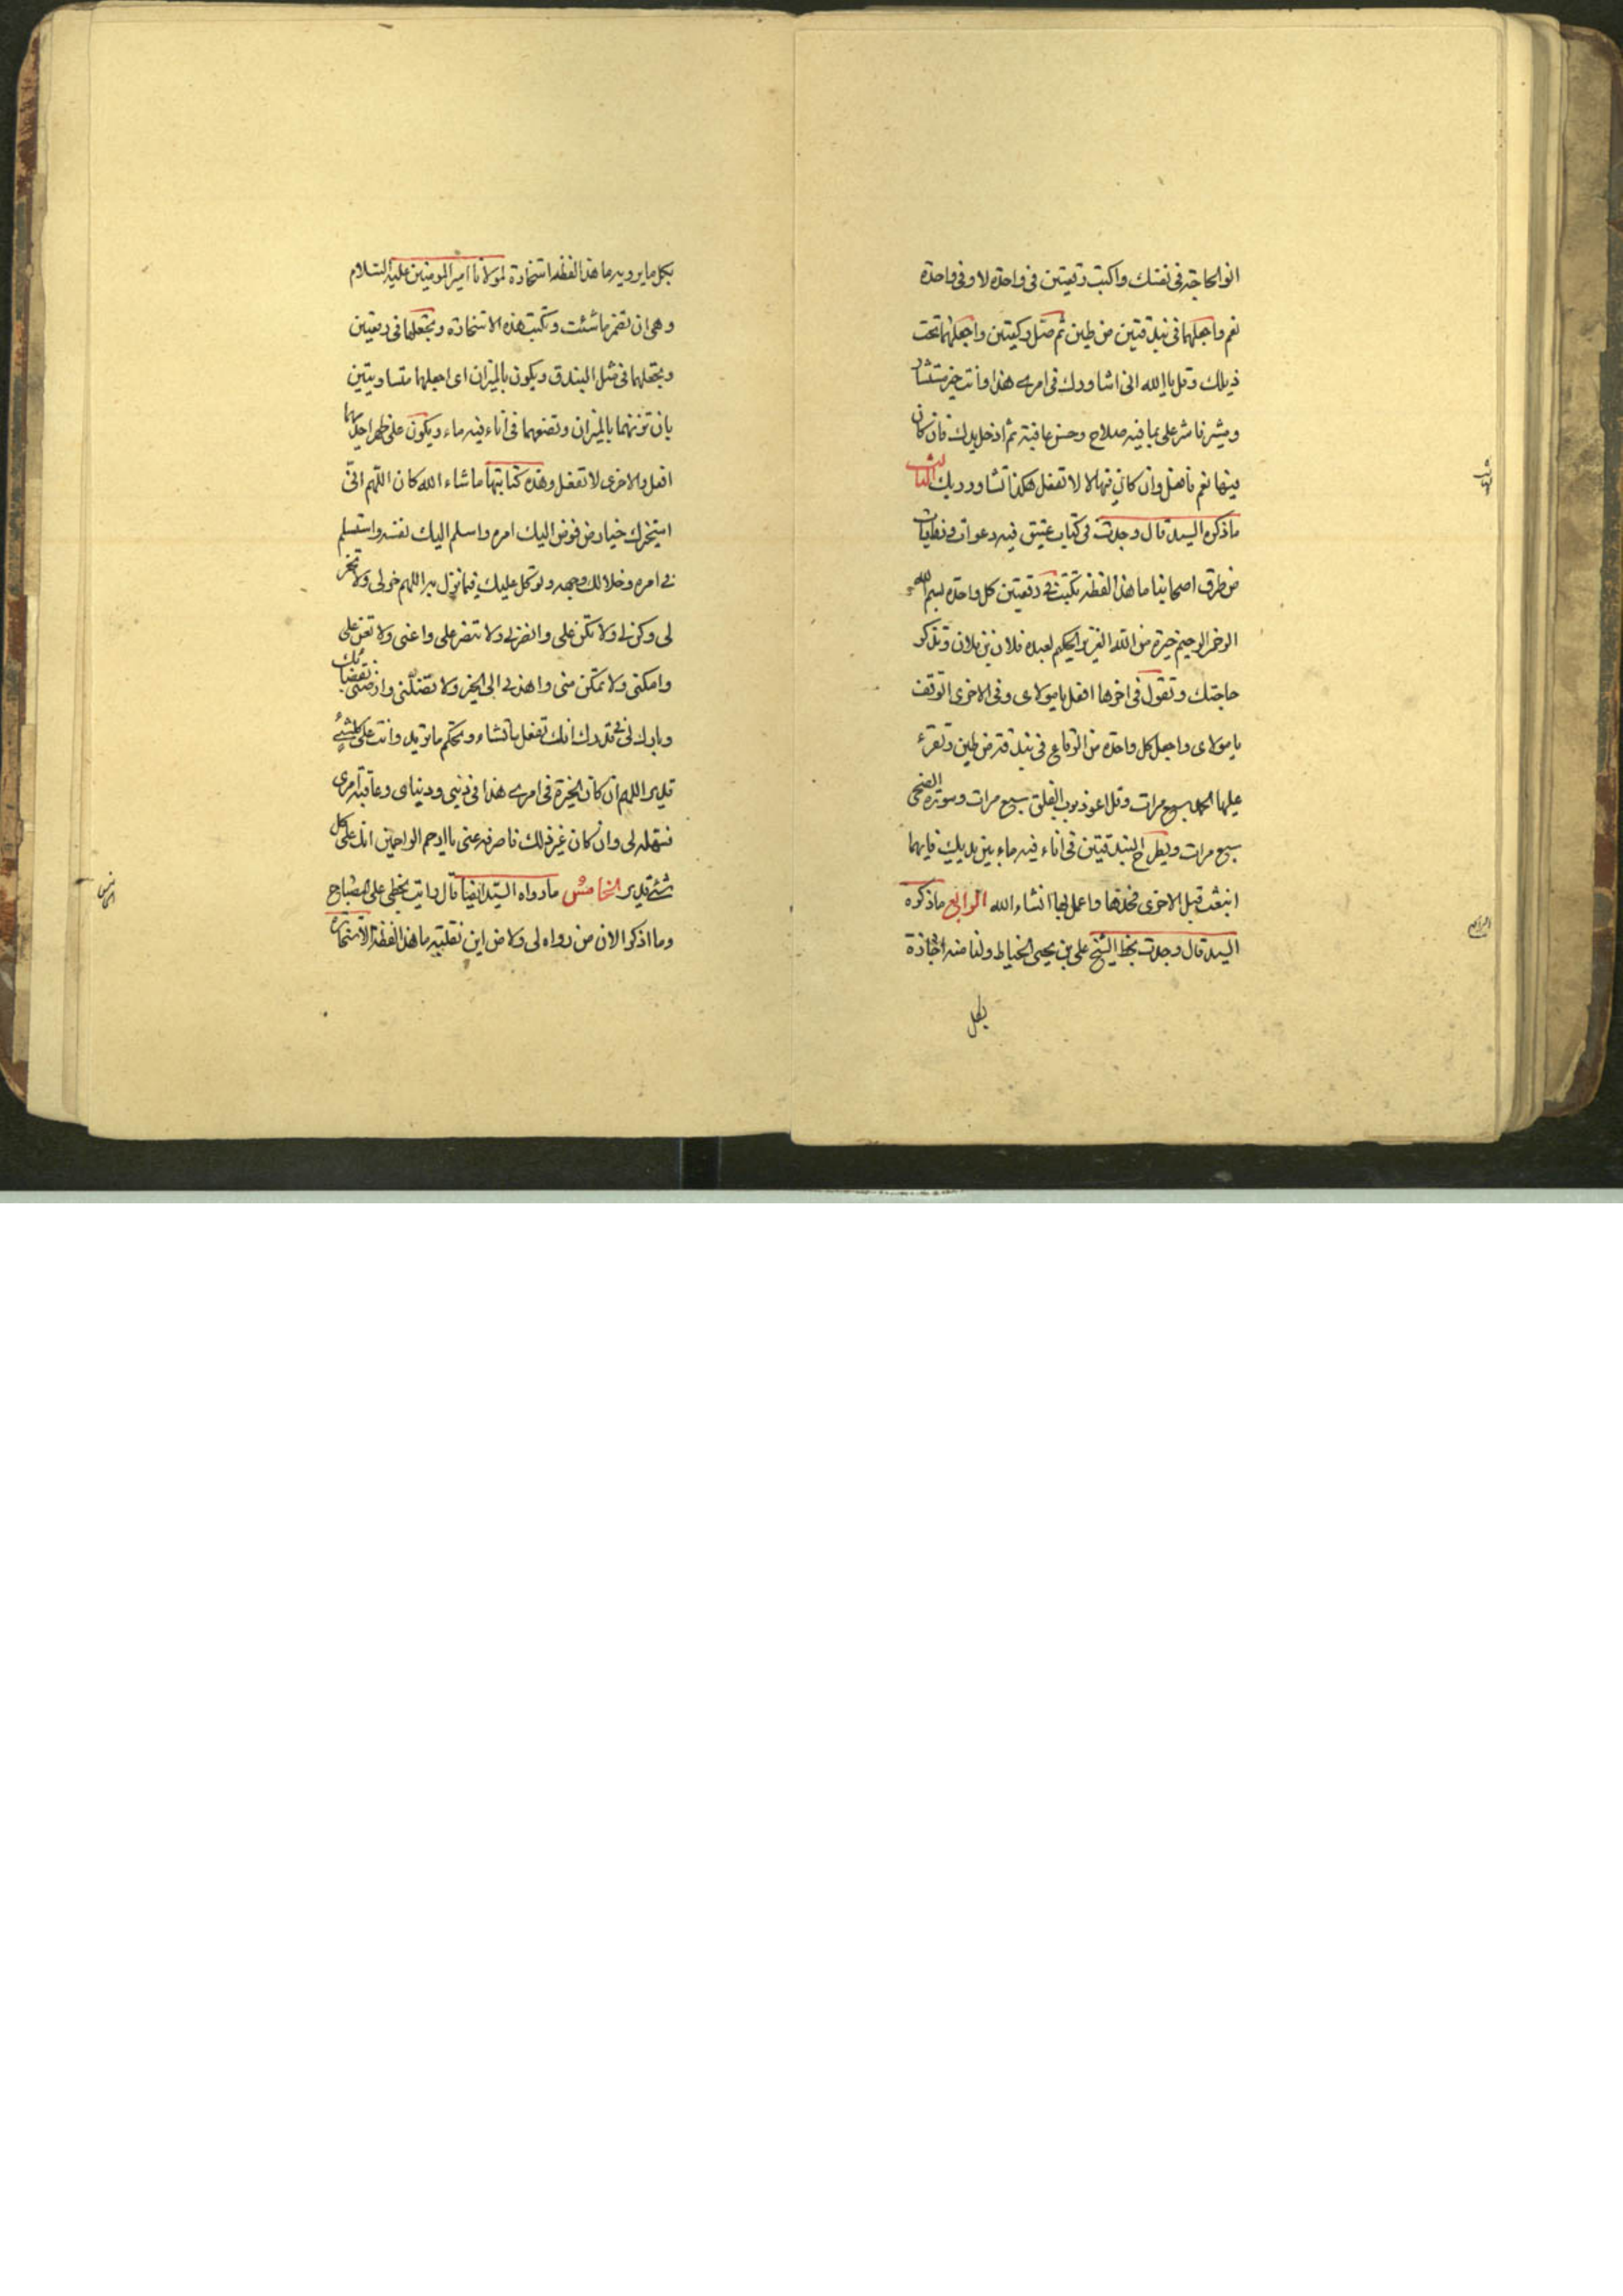 انو الحاجة فى نفسك واكتب رقعتين فى واحدة لا وفى واحدة
نعم واجعلهما فى بندقتين من طين ثم صل ركعتين واجعلهما تحت
ذيلك وقل يا الله انى اشاورك فى امرى هذا وانت خير مستشار
ومشير فاشر على بما فيه صلاح وحسن عاقبة ثم ادخل يدك فان كان
فيها نعم فافعل وان كان فيها لا لا تفعل هكذا تشاور ربك الثالث
ما ذكره السيد قال وجدت فى كتاب عتيق فيه دعوات وروايات
من طرق اصحابنا ما هذا لفظه تكتب فى رقعتين كل واحدة بسم الله
الرحمن الرحيم خيرة من الله العزيز الحكيم لعبده فلان بن فلان وتذكر
حاجتك وتقول فى اخرها افعل يا مولاى وفى الاخرى اتوقف
يا مولاى واجعل كل واحدة من الرقاع فى بندقة من طين وتقرء
عليها الحمد سبع مرات وقل اعوذ برب الفلق سبع مرات وسورة الضحى
سبع مرات ويطرح البندقتين فى اناء فيه ماء بين يديك فايهما
انبعثت قبل الاخرى فخذها واعمل بها انشاء الله الرابع ما ذكره
السيد قال وجدت بخط الشيخ على بن يحيى الخياط ولنا منه اجازة
بكل
الثالث
الرابع
بكل ما يرويه ما هذا لفظه استخارة لمولانا امير المومنين عليه السلام
وهى ان تضمر ما شئت وتكتب هذه الاستخارة وتجعلها فى رقعتين
وتجعلهما فى مثل البندق ويكون بالميزان اى اجعلهما متساويتين
بان تزنهما بالميزان وتضعهما فى اناء فيه ماء ويكون على ظهر احديهما
افعل والاخرى لا تفعل وهذه كتابتها ما شاء الله كان اللهم انى
استخيرك خيار من فوض اليك امره واسلم اليك نفسه واستسلم
اليك فى امره وخلا لك وجهه وتوكل عليك فيما نزل به اللهم خر لى ولا تخر
لى وكن لى ولا تكن على وانصرنى ولا تنصر على واعنى ولا تعن على
وامكنى ولا تمكن منى واهدنى الى الخير ولا تضلنى وارضنى بقضائك
وبارك لى فى قدرك انك تفعل ما تشاء وتحكم ما تريد وانت على كل شئ
قدير اللهم ان كان الخيرة فى امرى هذا فى دينى ودنياى وعاقبة امرى
فسهله لى وان كان غير ذلك فاصرفه عنى يا ارحم الراحمين انك على كل
شئ قدير الخامس ما رواه السيد ايضا قال رايت بخطى على المصباح
وما اذكر الان من رواه لى ولا من اين نقلته ما هذا لفظه الاستخارة
الخامس